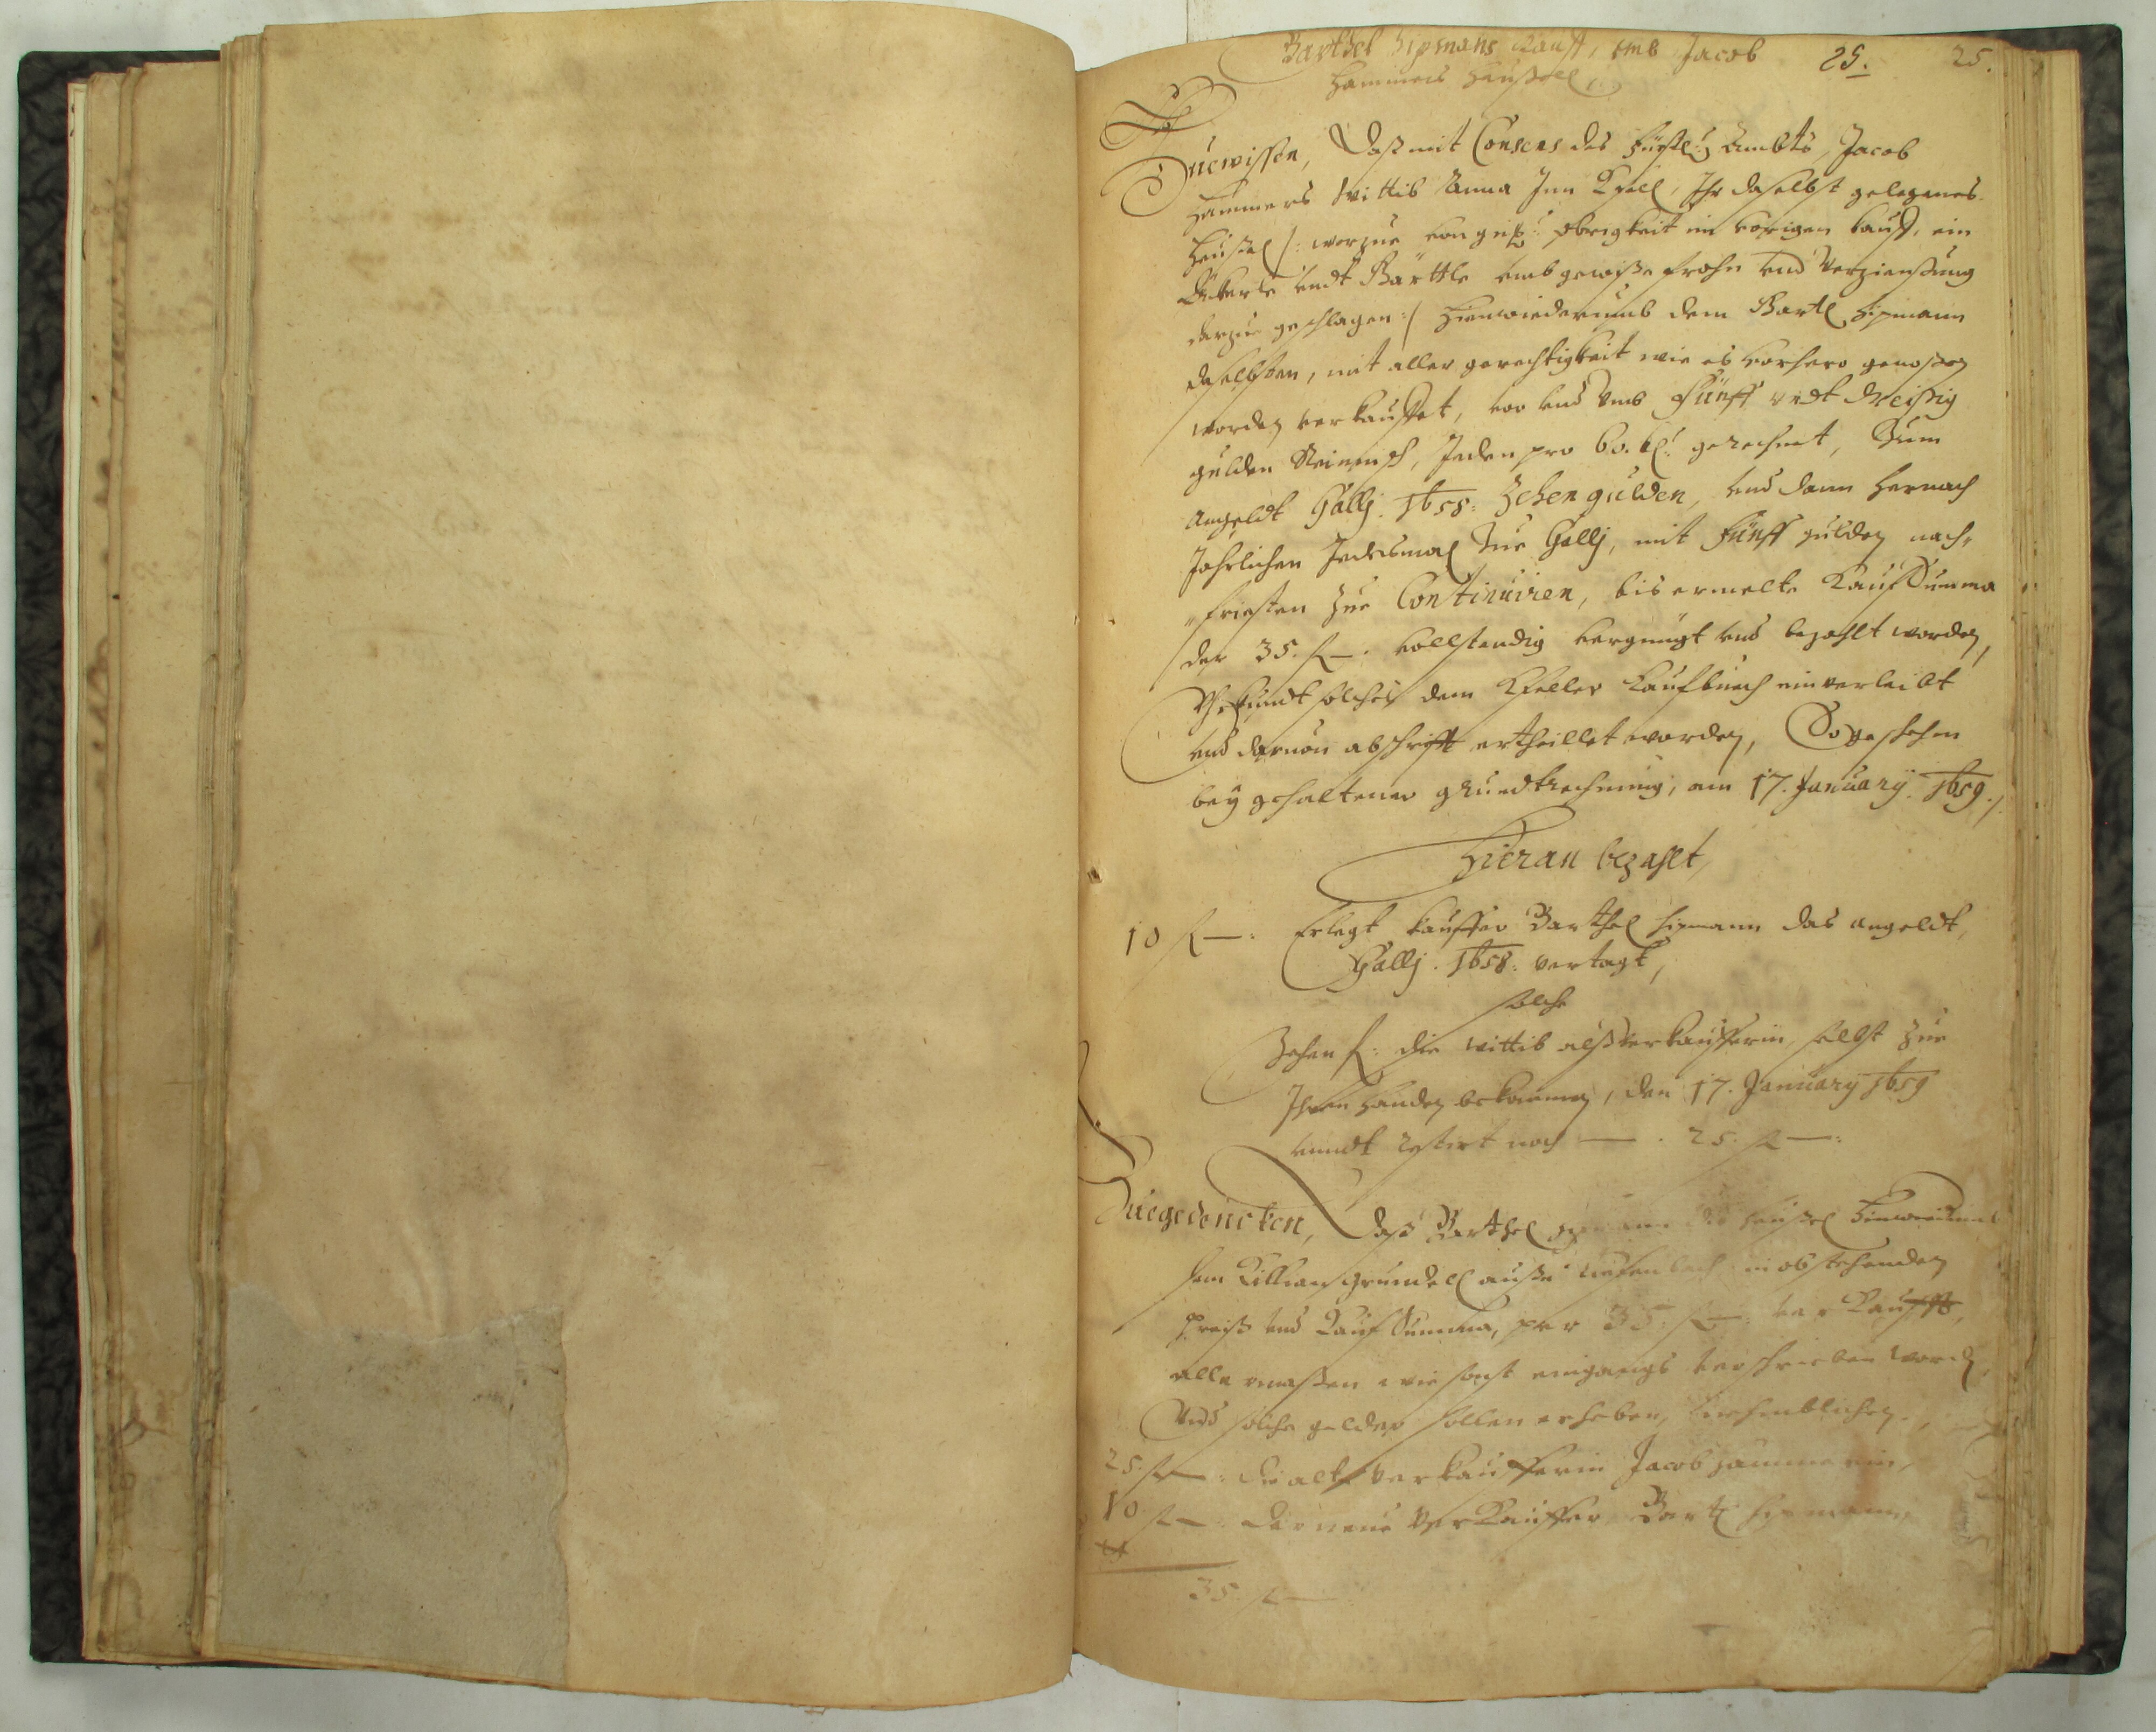 Barthel Hipmans Kauff, umb Jacob 25. 25.
Hammers Heußell
Zuewissen, Daß mit Consens des Fürstl: Ambts, Jacob
Hammers Wittib Anna Inn Thell, Ihr daselbst gelegenes
Heußel /: worzue von Obrigkeit im vorigen Kauff, ein
Äckerle undt Gärttle umb gewiße frohn und Verzinßung
darzue geschlagen :/ Hinwiederumb dem Bartl Hipmann
daselbsten, mit aller gerechtigkeit wie es vorhero genoßen
worden verkauffet, vor und umb Fünff undt dreißig
gulden Reinisch, Jeden pro 60. kr: gerechnet, Zum
Angeldt Gallj. 1658: Zehen gulden, und dann hernach
Jahrlichen Jedesmal Zue Gallj, mit Fünff gulden nach-
fristen Zue Continuiren, bis ermelte KaufSumma
der 35. f —: vollstendig vergnügt und bezahlt worden,
Uhrkundt solches dem Kauffbuech einverleibt
und daruon abschrifft ertheillet worden, So geschehen
bey gehaltener grundtrechnung, am 17. January. 1659.
Hieran bezahlt,
10 f —: Erlegt kauffer Barthel Hipmann das angeldt,
Gallj. 1658: vertagt,
solche
Zehen f: die Wittib alß verkaufferin, selbst Zue
Ihren Handen bekommen, den 17. January 1659
unndt restirt noch — . 25. f —:
Zuegedencken, Daß Barthel Hipmann die Heußel Hinwiederumb
dem Killian Grundell außn in obstehenden
Preiß und KaufSumma, per 35. f —: verkaufft,
aller maßen wie sonst eingangs beschrieben worden,
Und solche gelder sollen erheben,
25. f —: die alte Verkaufferin Jacob Hammerin,
10 f —: der neue Verkauffer Bartl Hipmann,
35. f —